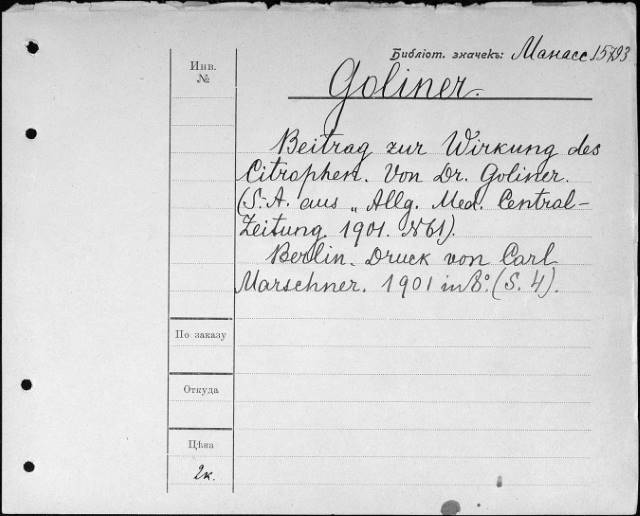 Библіот. значекъ: Манасс 15493
Инв.
№
Goliner.
Beitrag zur Wirkung des
Citrophen. Von Dr. Goliner.
(S.-A. aus „Allg. Med. Central-
Zeitung. 1901. №61).
Berlin. Druck von Carl
Marschner. 1901 in 8º. (S. 4).
По заказу
Откуда
Цѣна
2к.